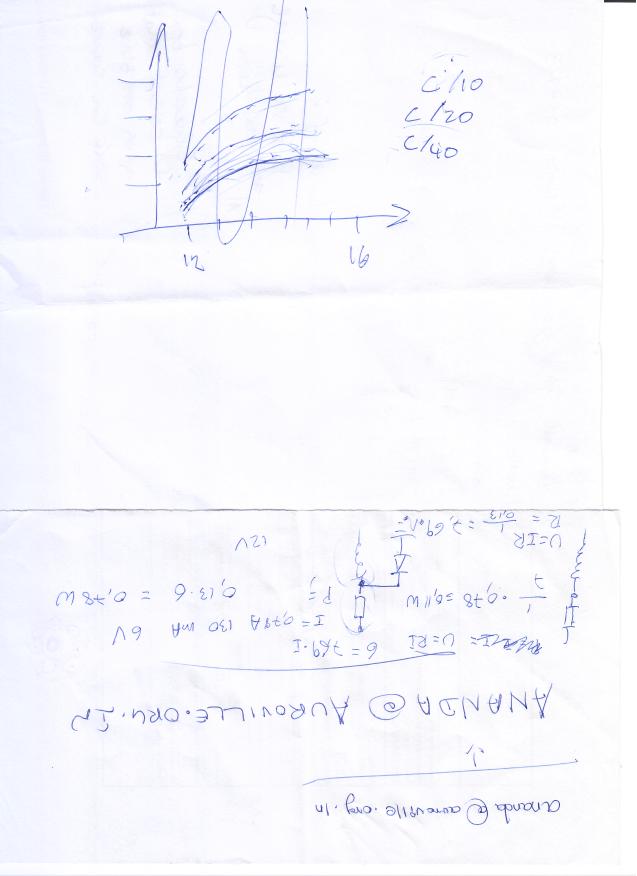 C/10
C/20
C/40
12
16
ananda@auroville.org.in
ANANDA @ AUROVILLE.ORG.IN
U=RI 6=769·I
I=0,79A 130 mA 6V
P= 0,13·6 = 0,78W
1/7 · 0,78=0,11W
12V
U=IR
R = 1/0,13 = 7,69